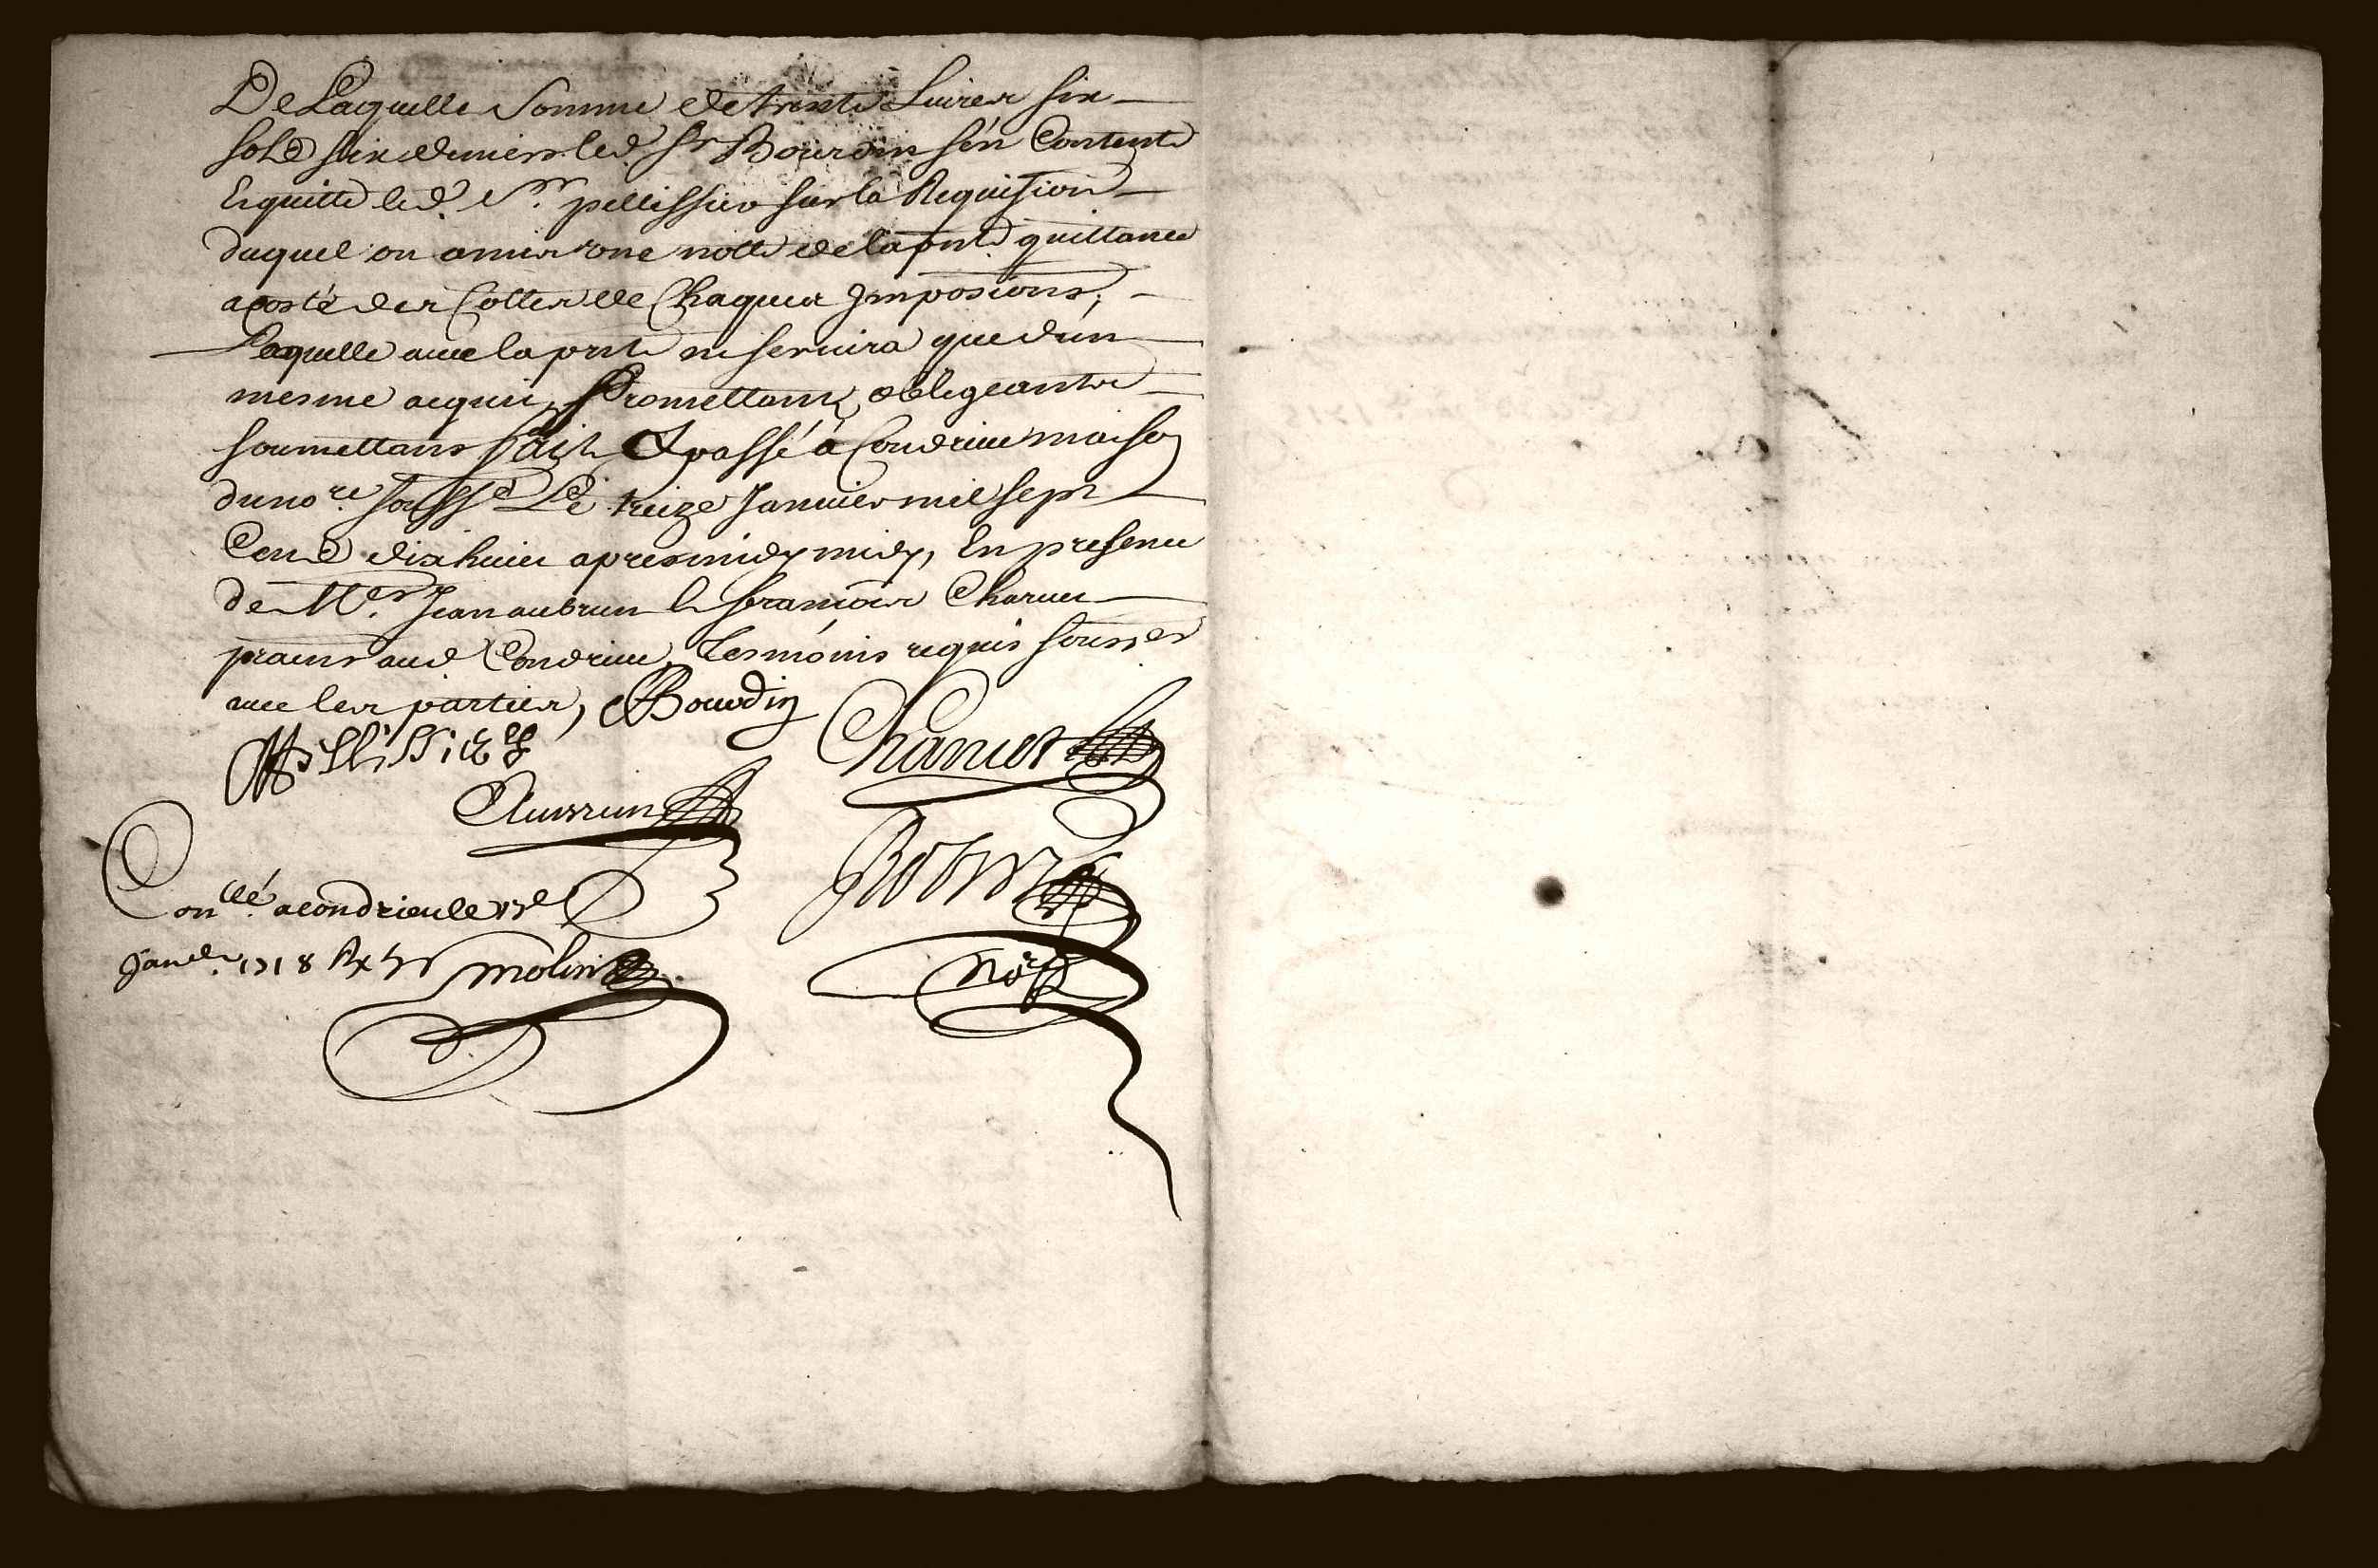 De Laquelle Somme de trente Liures six
sols six deniers led Sr Bourdin s'en Contente
Et quitte led. Sr. pellissier sur la Requision
duquel on a mis une notte de la pnte quittance
a costé des Cottes de Chaques Imposions,
Laquelle auec la pnte ne seruira que d'un
mesme acquit, Promettans, obligeants
soumettans fait Et passé a Condrieu maison
du nore. soussé Le treize Januier mil sept
Cent dix huict apres midy midy, En presence
de Mes. Jean aubrun & françois Charuet
prains aud Condrieu, Tesmoins requis soussés
auec les parties, Bourdin
Pellissier
Charuet
Aubrun
Conllé. a condrieu le 13e
Janer. 1718 Rx
molin
Robin
Nore